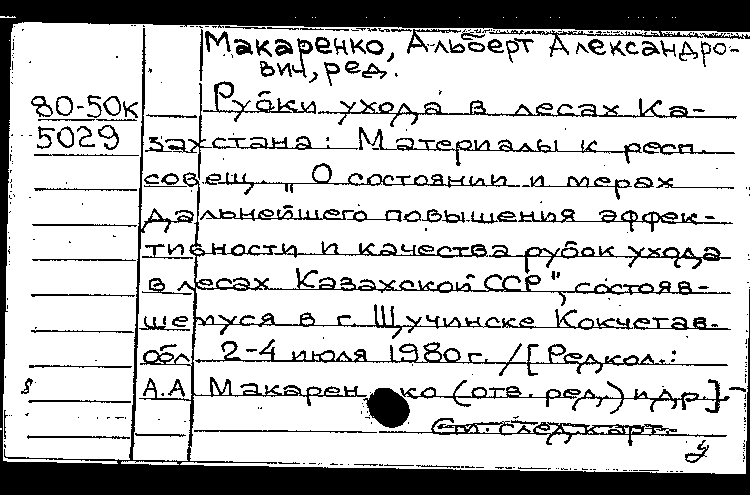 Макаренко, Альберт Александро-
вич, ред.
80-50к
5029
Рубки ухода в лесах Ка-
захстана: Материалы к респ.
совещ. „О состоянии и мерах
дальнейшего повышения эффек-
тивности и качества рубок ухода
в лесах Казахской ССР", состояв-
шемуся в г. Щучинске Кокчетав.
обл. 2-4 июля 1980 г. /[Редкол.:
8 А.А Макаренко (отв. ред.) и др.].-
См. след. карт.
у